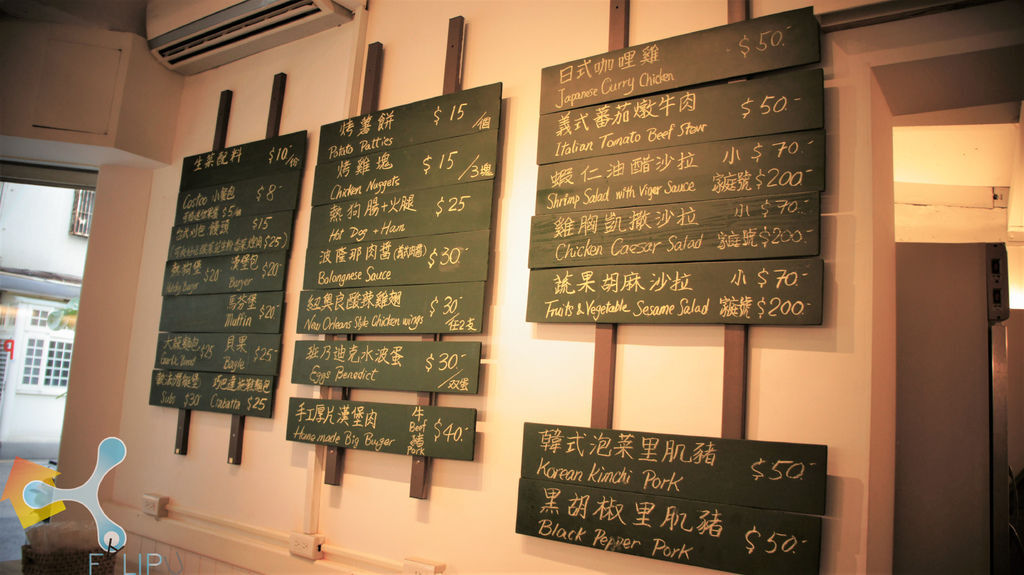 生菜配料 $10-/份
Costco 小餐包 $8-
$5/
$15
$25
漢堡包 $20-
$20 Burger
馬芬堡
Muffin $20-
大蒜麵包 $25 貝果 $25-
Garlic Bread Bagle
巧巴達拖鞋麵包
Subs $30 Ciabatta $25
烤薯餅 $15/個
Potato Patties
烤雞塊 $15/3塊
Chicken Nuggets
熱狗腸+火腿 $25
Hot Dog + Ham
波隆那肉醬 $30-
Bolongnese Sauce
紐奧良風味雞翅 $30-
New Orleans Style Chicken wings 任2支
班乃迪克水波蛋 $30-
Eggs Benedict /双蛋
手工厚片漢堡肉 牛 Beef $40-
Home made Big Buger 豬 Pork
日式咖哩雞 $50-
Japanese Curry Chicken
義式番茄燉牛肉 $50-
Italian Tomato Beef Stew
蝦仁油醋沙拉 小 $70-
Shrimp Salad with Viger Sauce 家庭號 $200-
雞胸凱撒沙拉 小 $70-
Chicken Caesar Salad 家庭號 $200-
蔬果胡麻沙拉 小 $70-
Fruits & Vegetable Sesame Salad 家庭號 $200-
韓式泡菜里肌豬 $50-
Korean Kimchi Pork
黑胡椒里肌豬 $50-
Black Pepper Pork